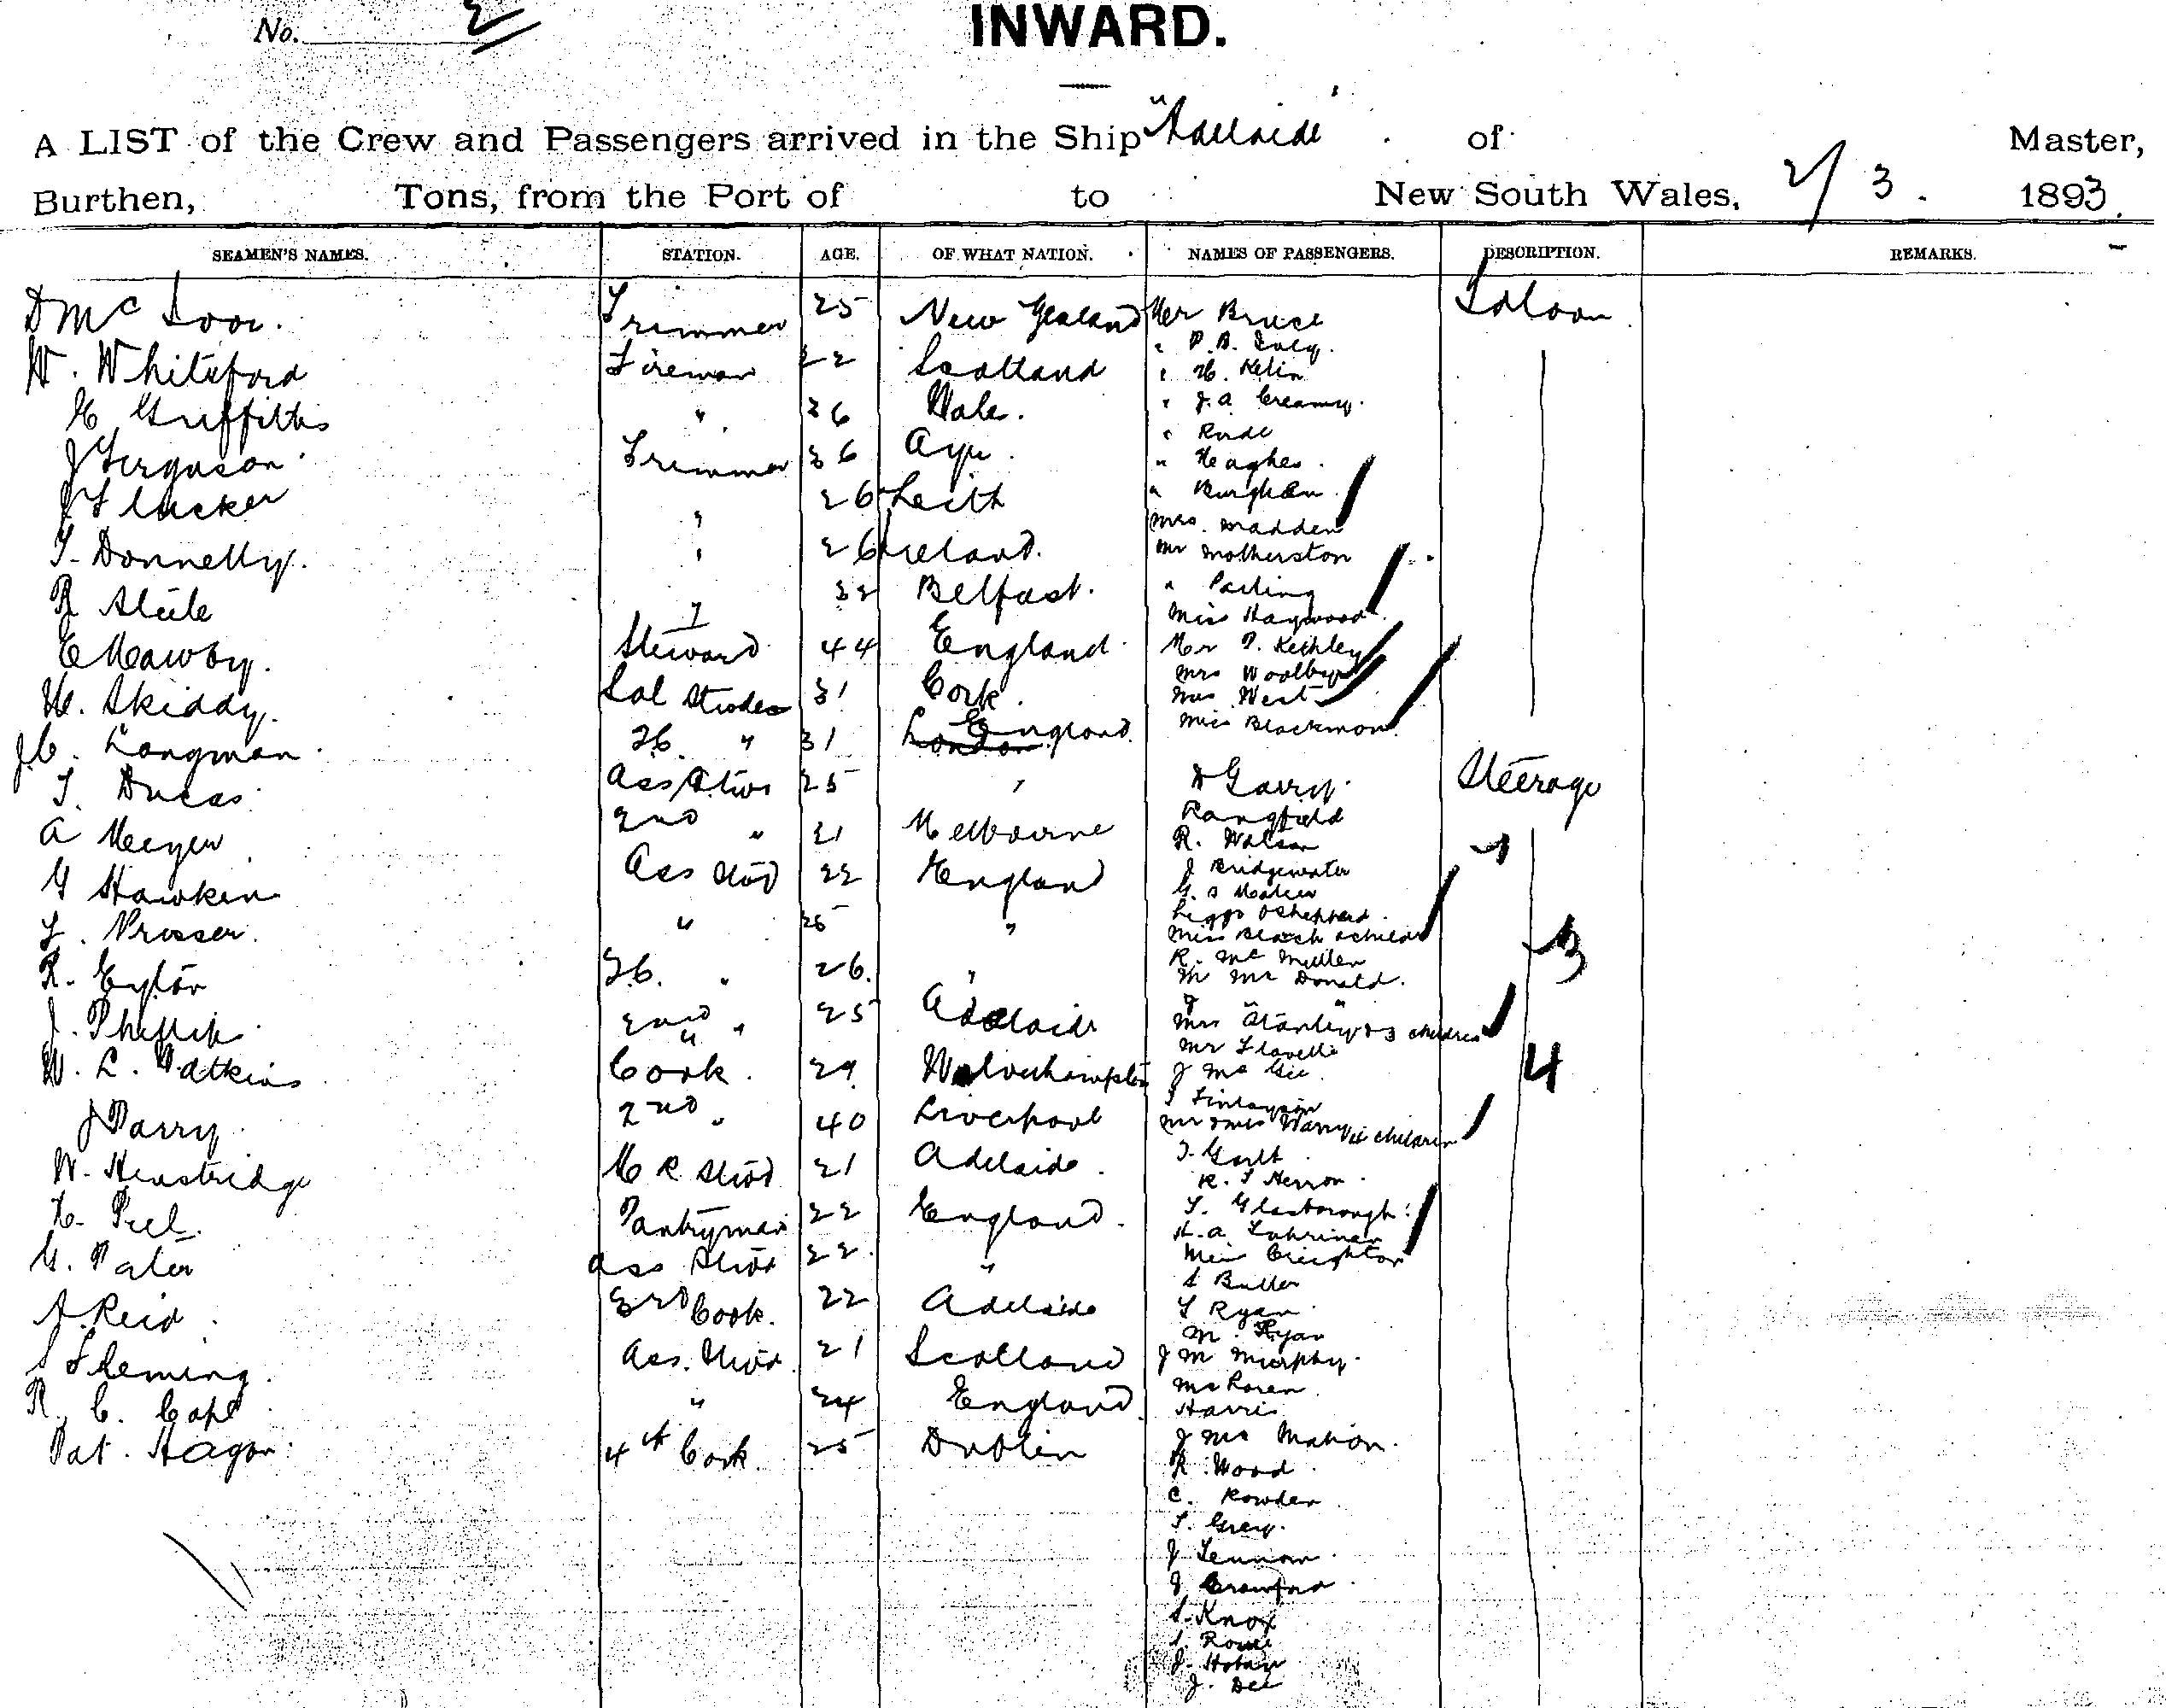 No. 2
INWARD.
A LIST of the Crew and Passengers arrived in the Ship "Adelaide" of Master,
Burthen, Tons, from the Port of to New South Wales, 2/3. 1893.
SEAMEN'S NAMES. STATION. AGE. OF WHAT NATION. NAMES OF PASSENGERS. DESCRIPTION. REMARKS.
D Mc Trimmer 25 New Zealand Mr Bruce Saloon
W. Whiteford Fireman Scotland
Griffiths " 36 Wale.
" J. A. Creamy.
" Rude
J Ferguson Trimmer 36 Ayr.
" Heaghes.
J Flucker " 26 Leith
" Burghen.
Mrs. Madden
T. Donnelly. " 26 Ireland.
Mr Motherston
R Steile " 32 Belfast.
" Parling
Miss Haywood
E Mawby. Steward 44 England.
Mr T. Keighley
Mrs
H. Skiddy. Sal Stwdes 31 Cork.
Mrs West
J. C. Langman. " 31 England
Miss Blackmon
T. Ducas Ass Stwd 25 "
D Garry. Steerage
Rangfield
A Meyer 2nd " 21 Melbourne
R. Watson
J Bridgewater
G Hawken Ass Stwd 22 England
Liggo & Shepherd.
L. Prosser. " 25 "
Miss Beach & child
3
R. Eylor " 26. "
R. Mc Mullen
M Mc Donald.
J. Phillips 2nd " 25 Adelaide
Mrs Stanley & 3 children
Mr Flavelle
W. L. Watkins Cook. 29 Wolverhampton
J Mc Gee.
4
J Finlayson
J Parry 2nd " 40 Liverpool
Mr & Mrs Warry 4 children
W. Henstridge M R Stwd 21 Adelaide.
T. Gault
R. T Herron.
H. Peel. Pantryman 22 England.
T. Glasborough.
H. A.
G. Pater Ass Stwd 22. "
Miss Creighton
S Butler
A. Reid 3rd Cook. 22 Adelaide
T Ryan
M. Ryan
S Fleming. Ass. Stwd. 21 Scotland
J M Murphy.
McLaren.
R. C. Cape " 24 England
Harris
Pat. Hagan. 4th Cook. 25 Dublin
J Mc Mahon.
R. Wood.
C. Rowden
T. Grey.
J Lennon.
J Crawford.
S. Knox
S. Rowe
J. Hoban
J. Dee